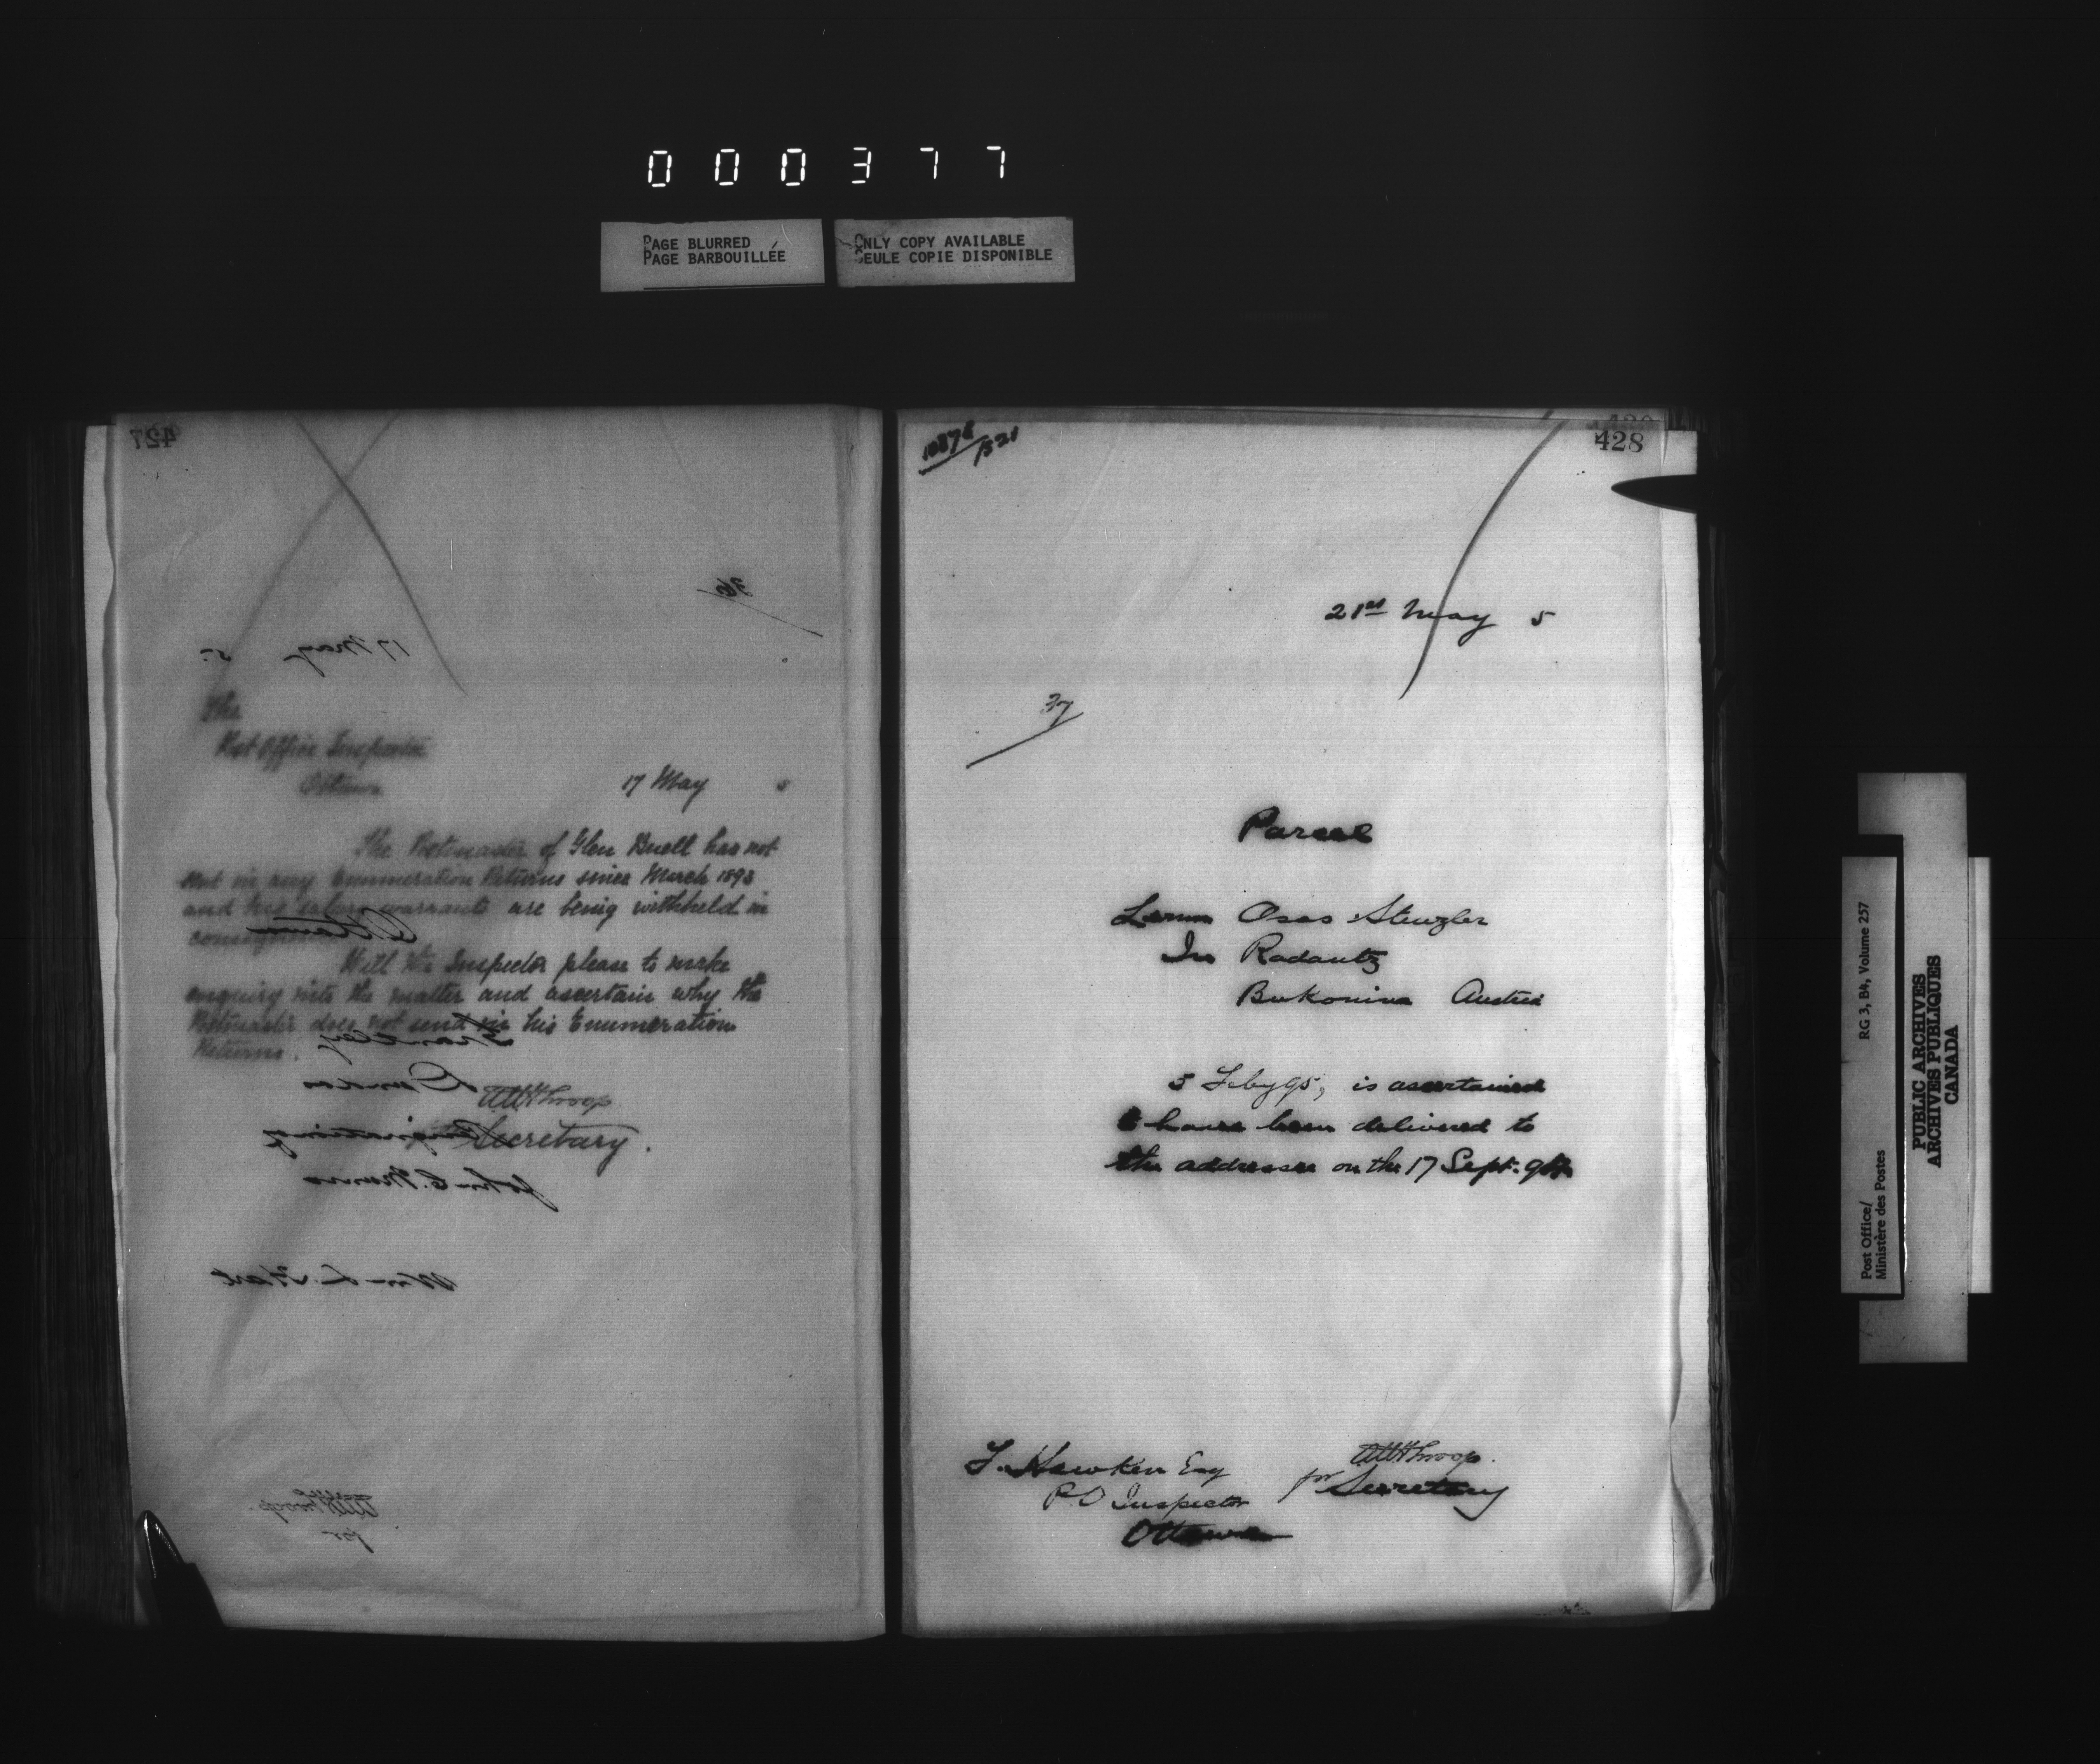 000377
PAGE BLURRED
PAGE BARBOUILLÉE
ONLY COPY AVAILABLE
SEULE COPIE DISPONIBLE
427
36
17 May 5
The
Post Office Inspector
Ottawa
17 May 5
The Postmaster of Glen Buell has not
sent in any Enumeration Returns since March 1893
and his salary warrants are being withheld in
Ottawa
Will the Inspector please to make
enquiry into the matter and ascertain why the
Postmaster does not send in his Enumeration
Returns.
WHThroop
Secretary.
John C. Munro
Wm L. Hart
WHThroop
for
428
21st May 5
37
Parcel
From Osas Stenzler
In Radautz
Bukonina Austria
5 Feby 95, is ascertained
to have been delivered to
the addressee on the 17 Sept.
F. Hawken Esq
P.O Inspector
Ottawa
WHThroop.
for Secretary
Post Office/
Ministère des Postes
RG 3, B4, Volume 257
PUBLIC ARCHIVES
ARCHIVES PUBLIQUES
CANADA